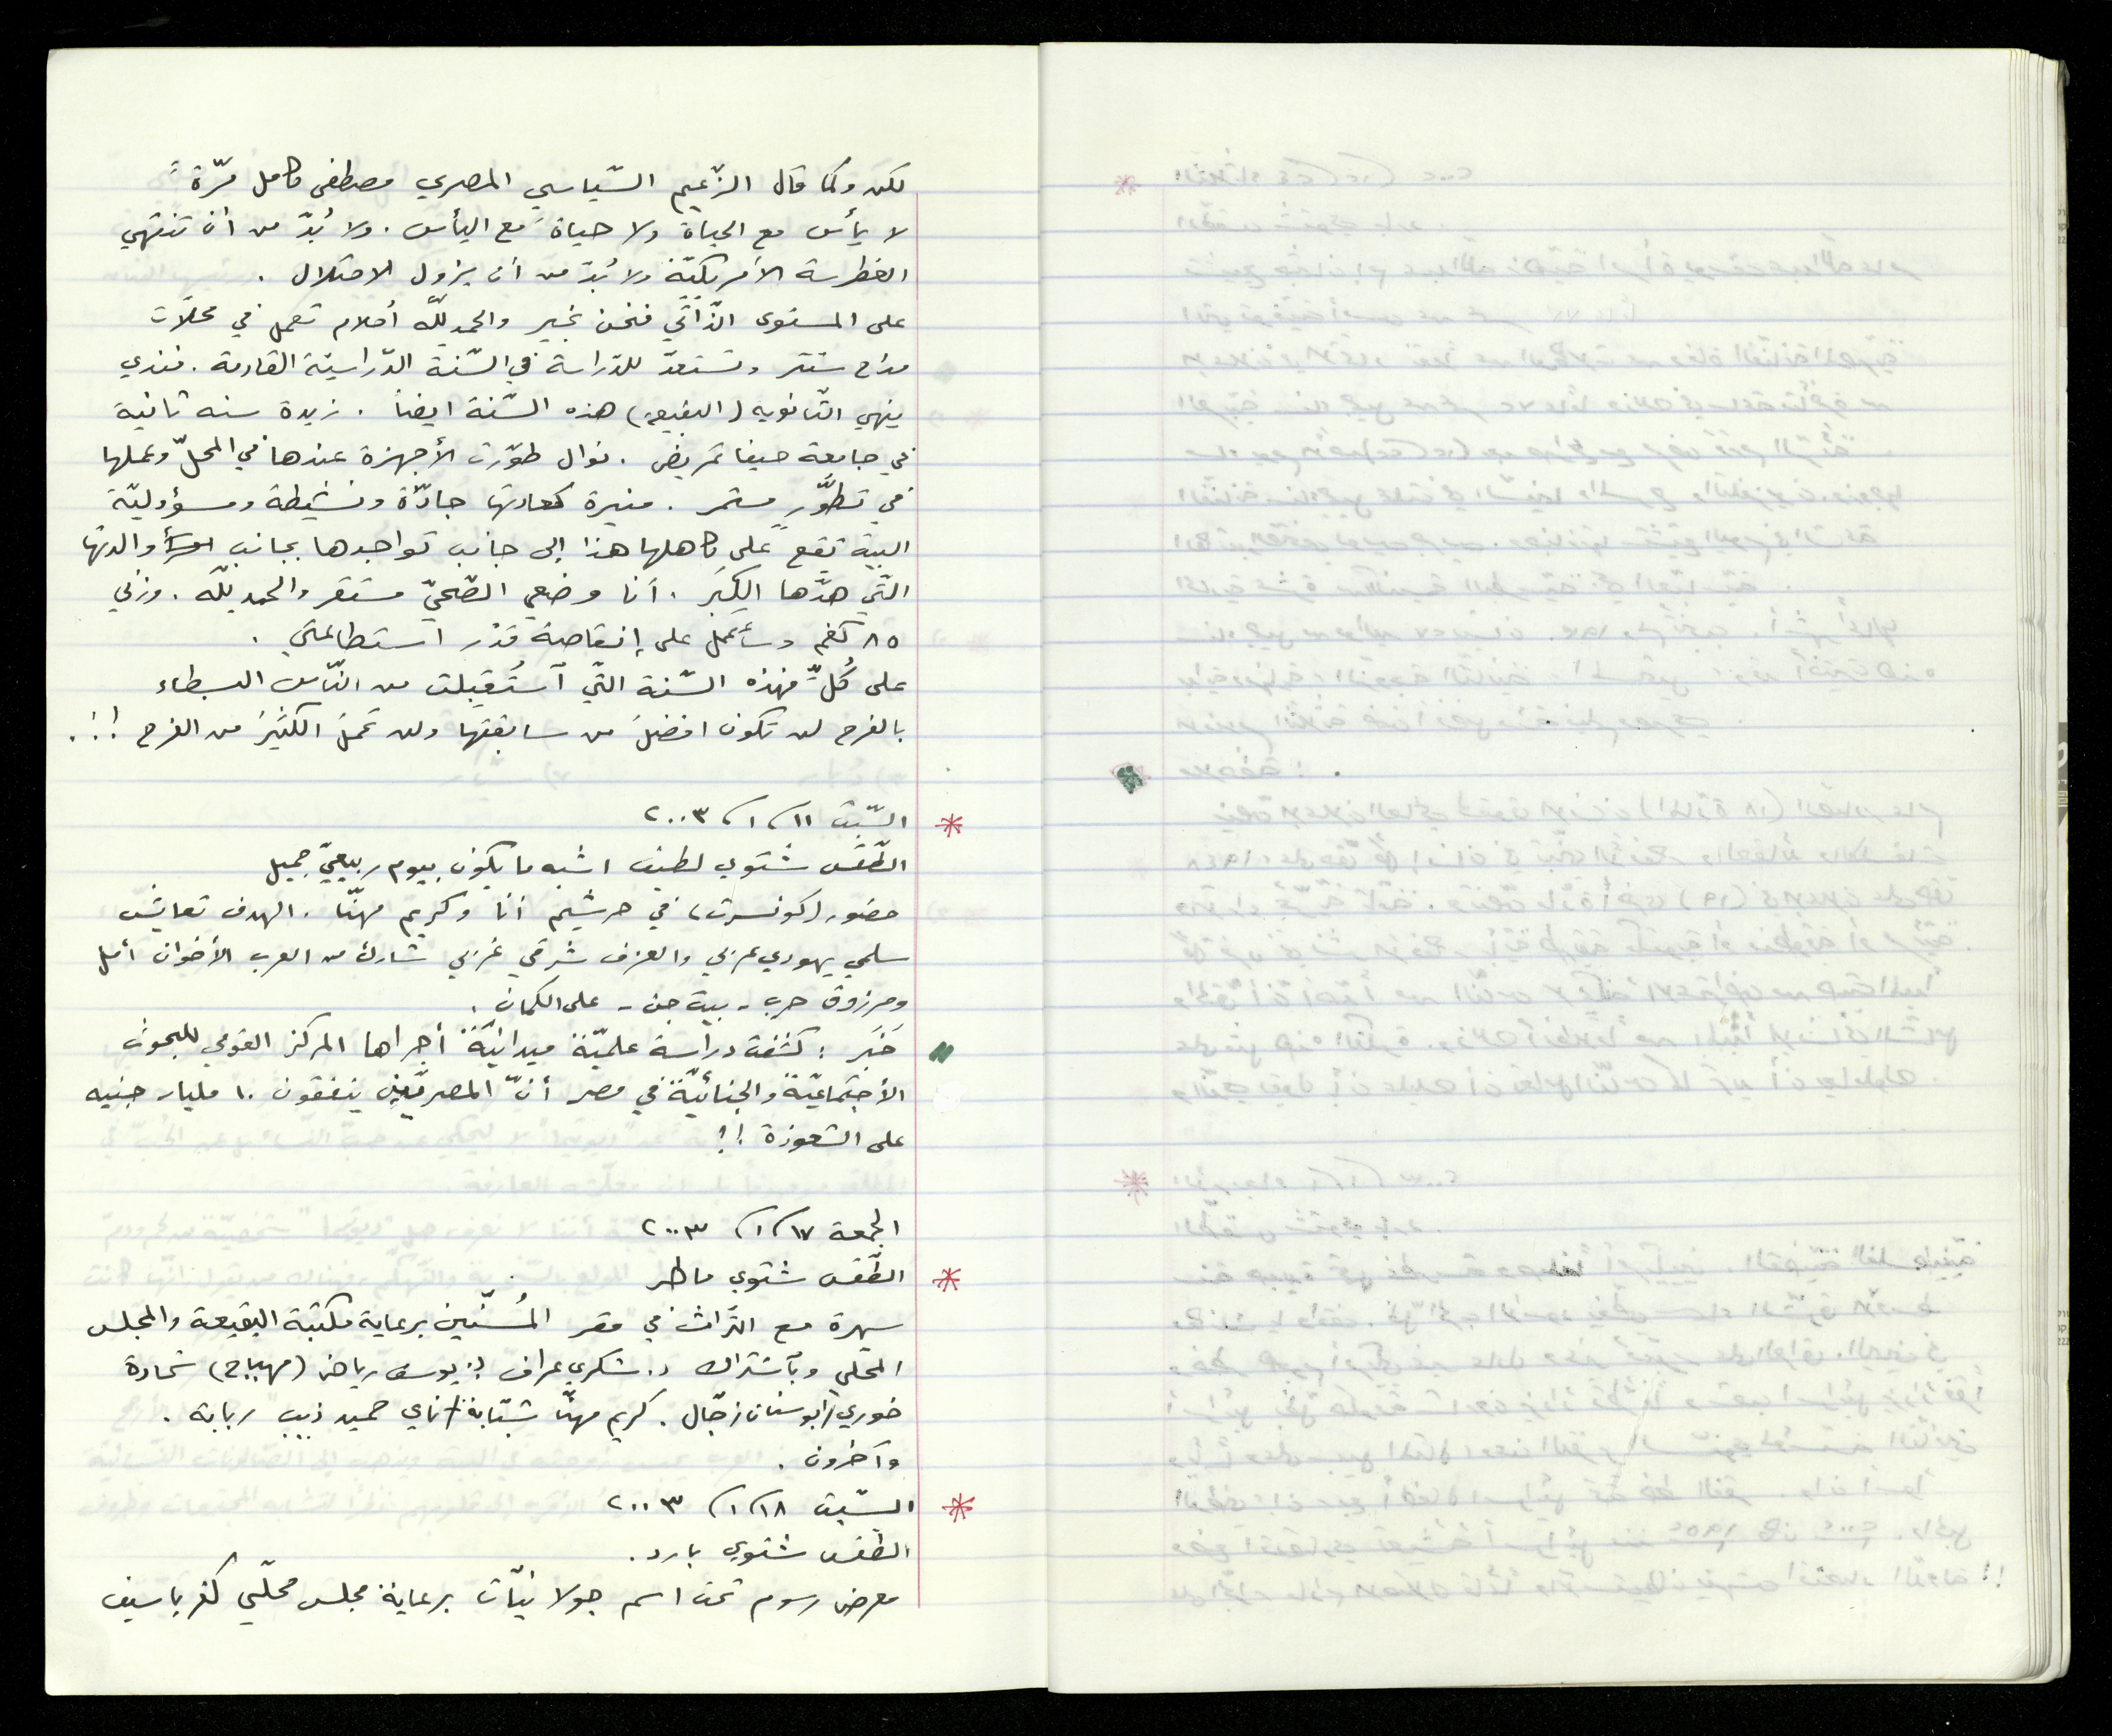 لكن وكما قال الزّعيم السّياسي المصري مصطفى كامل مرّةً
لا يأس مع الحياة ولا حياةَ مع اليأس . ولا بُدّ من أن تنتهي
الغطرسة الأمريكيّة ولا بُدّ من أن يزول الاحتلال .
على المستوى الذّاتّي فنحن بخير والحمد للّه أحلام تعمل في محلّات
مزاح سنتر وتستعدّ للدّراسة في السّنة الدّراسيّة القادمة . فندي
ينهي الثّانويه (البقيعة) هذه السّنة ايضاً . زبدة سنه ثانية
في جامعة حيفا تمريض . نوال طوّرت الأجهزة عندها في المحلّ وعملها
في تطوُّرٍ مستمر . منيرة كعادتها جادّة ونشيطة ومسؤوليّة
البيت تقع على كاهلها هذا إلى جانب تواجدها بجانب والدتها
التّي هدّها الكِبَر . أنا وضعي الصّحيّ مستقر والحمد للّه . وزني
٨٥ كغم وسأعمل على إنقاصه قدْر استطاعتي .
على كُلٍّ فهذه السّنة التّي آستُقبِلت من النّاس البسطاء
بالفرح لن تكون افضلَ من سابقتها ولن تحملَ الكثيرَ من الفرح !!.
السّبت ١١/١/٢٠٠٣
الطّقس شتوي لطيف اشبه ما يكون بيوم ربيعيّ جميل
حضور (كونسرت) في حرشيم أنا وكريم مهنّا . الهدف تعايش
سلمي يهودي عربي والعزف شرقي غربي شارك من العرب الأخوان أمل
ومرزوق حرب - بيت جن - على الكمان .
خَبَر : كشفت دراسة علميّة ميدانيّة أجراها المركز القومي للبحوث
الأجتماعيّة والجنائيّة في مصر أنّ المصريّين ينفقون ١٠ مليار جنيه
على الشعوذة !!
الجمعة ١٧/١/٢٠٠٣
الطّقس شتوي ماطر
سهرة مع التّراث في مقر المُسنّين برعاية مكتبة البقيعة والمجلس
المحلّي وبآشتراك د. شكري عراف ؛ يوسف رياض (مهباج) شحادة
خوري/ابو سنان زجّال . كريم مهنّا شبّابة/ناي حميد ذيب ربابة .
وآخرون .
السّبت ١٨/١/٢٠٠٣
الطّقس شتوي بارد .
معرض رسوم تحت اسم جولانيّات برعاية مجلس محلّي كفر ياسيف